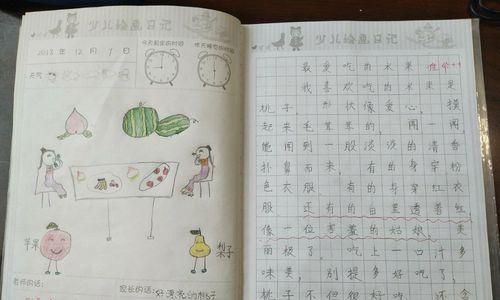 少儿绘画日记
2018 年 12 月 1 日
今天起床的时间
昨天睡觉的时间
天气
苹果
梨子
老师的话:
家长的话:好漂亮的桃子
少儿绘画日记
最爱吃的水果
我喜欢吃的水果是
桃子,形状像爱心,摸
起来毛茸茸的,闻一闻,
能闻到一股淡淡的清香
扑鼻而来,有的身穿粉
色衣服,有的身穿红衣
服,还有的白里透着红
像一位害羞的姑娘,美
丽极了,吃上一口汁多
味美,别提多好吃了,
桃子不但很好吃,还含